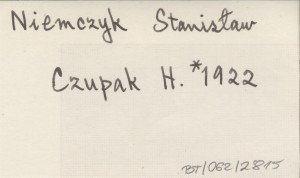 Niemczyk Stanisław
Czupak H. *1922
BT/062/2815